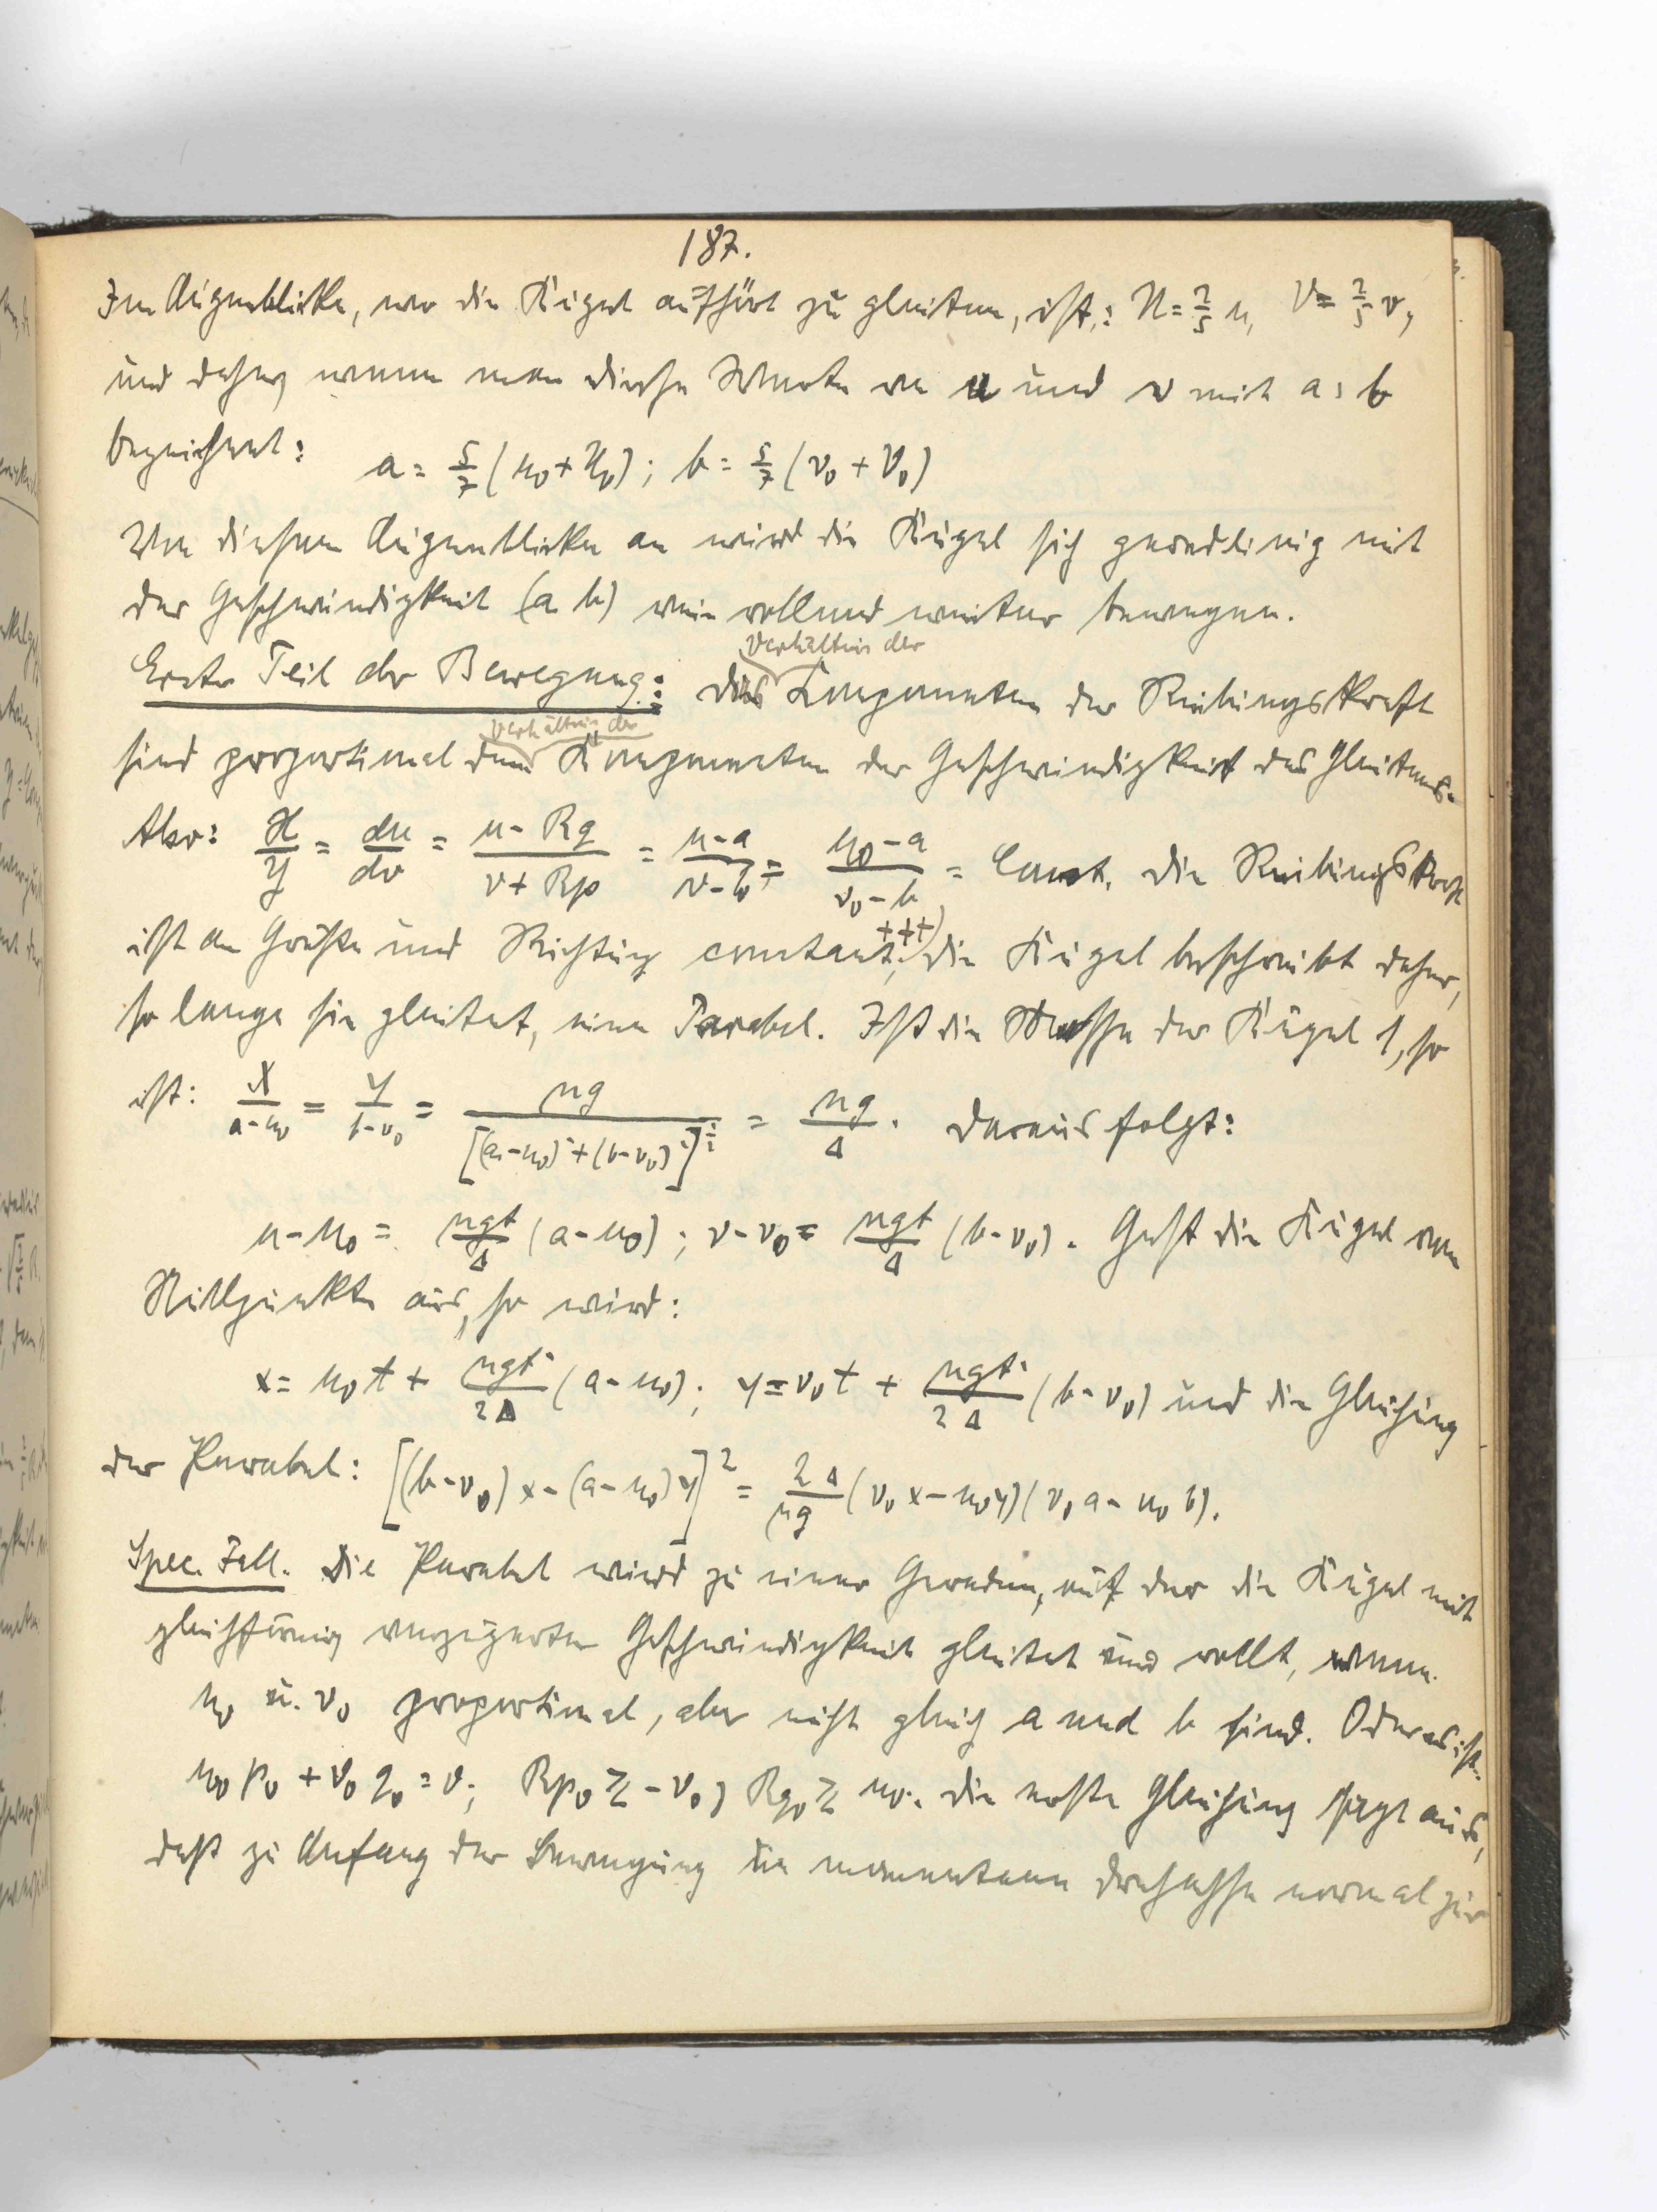 187.
Im Augenblicke, wo die Kugel aufhört zu gleiten, ist: U = 2/5 u, V = 2/5 v,
und daher wenn man diese Werte von u und v mit a, b
bezeichnet: a = 5/7 (u₀ + U₀); b = 5/7 (v₀ + V₀)
Von diesem Augenblicke an wird die Kugel sich geradlinig mit
der Geschwindigkeit (a b) rein rollend weiter bewegen.
Verhältnis der
Erster Teil der Bewegung: das Komponenten der Reibungskraft
Verhältnis der
sind proportional dem Komponenten der Geschwindigkeit des Gleitens.
Also: X/Y = du/dv = (u - Rq)/(v + Rp) = (u - a)/(v - b) = (u₀ - a)/(v₀ - b) = Const. Die Reibungskraft
ist an Größe und Richtung constant; +++) die Kugel beschreibt daher,
so lange sie gleitet, eine Parabel. Ist die Masse der Kugel 1, so
ist: X/(a - u₀) = Y/(b - v₀) = μg/[(a - u₀)² + (b - v₀)²]^½ = μg/Δ. Daraus folgt:
u - u₀ = μgt/Δ (a - u₀); v - v₀ = μgt/Δ (b - v₀). Geht die Kugel vom
Nullpunkte aus, so wird:
x = u₀t + μgt²/2Δ (a - u₀); y = v₀t + μgt²/2Δ (b - v₀) und die Gleichung
der Parabel: [(b - v₀)x - (a - u₀)y]² = 2Δ/μg (v₀x - u₀y)(v₀a - u₀b).
Spec. Fall. Die Parabel wird zu einer Geraden, auf der die Kugel mit
gleichförmig verzögerter Geschwindigkeit gleitet und rollt, wenn
u₀ u. v₀ proportional, aber nicht gleich a und b sind. Oder es ist:
u₀p₀ + v₀q₀ = 0; Rp₀ ≷ -v₀; Rq₀ ≷ u₀. Die erste Gleichung sagt aus,
daß zu Anfang der Bewegung die momentane Drehachse normal zur